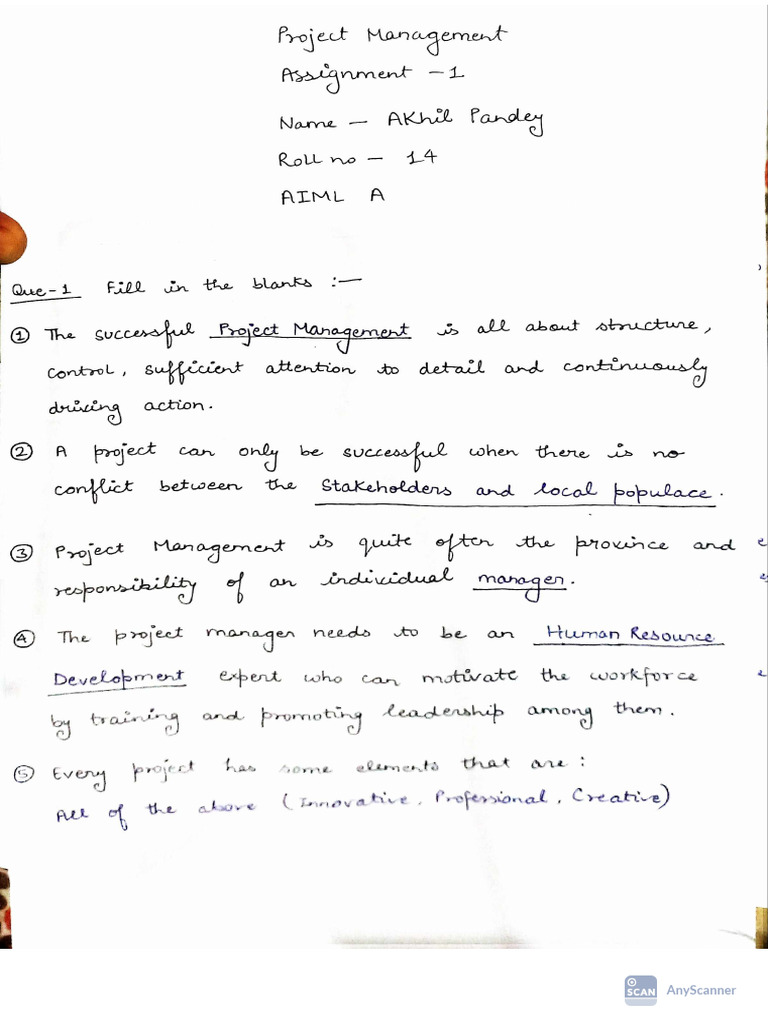 Project Management
Assignment - 1
Name - Akhil Pandey
Roll no - 14
AIML A
Que-1 Fill in the blanks :-
① The successful Project Management is all about structure,
control, sufficient attention to detail and continuously
driving action.
② A project can only be successful when there is no
conflict between the Stakeholders and local populace.
③ Project Management is quite often the province and
responsibility of an individual manager.
④ The project manager needs to be an Human Resource
Development expert who can motivate the workforce
by training and promoting leadership among them.
⑤ Every project has some elements that are :
All of the above (Innovative, Professional, Creative)
SCAN AnyScanner